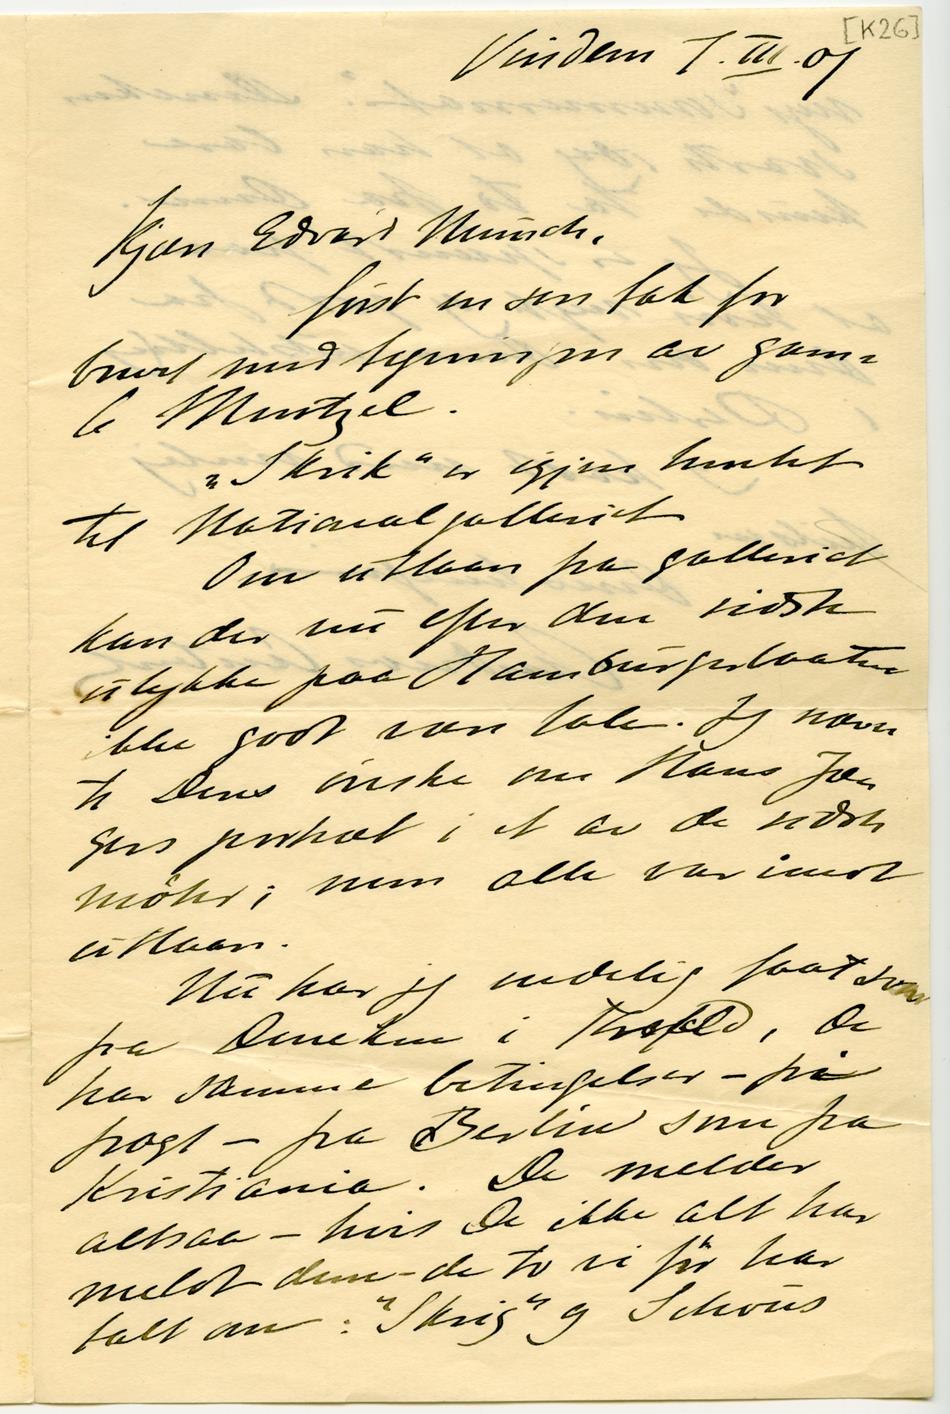 [K26]
Vindern 7.III.07
Kjære Edvard Munch,
først en sen tak for
brevet med tegningen av gam=
le Mentzel.
„Skrik" er igjen hentet
til Nationalgalleriet
Om utlaan fra galleriet
kan der nu efter den sidste
ulykke paa Hamburgerbaaten
ikke godt være tale. Jeg nævn
te Deres ønske om Hans Jæ
gers portræt i et av de sidste
møter; men alle var imot
utlaan.
Nu har jeg endelig faat svar
fra Deneken i Krefeld, De
har samme betingelser – fri
fragt – fra Berlin som fra
Kristiania. De melder
altsaa – hvis De ikke alt har
meldt dem – de to vi før har
talt om: "Skrig" og Schous